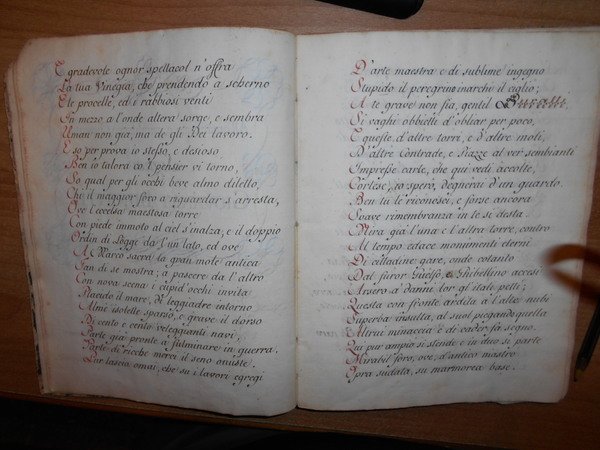 E gradevole ognor spettacol n'offra
La tua Vinegia, che prendendo a scherno
E le procelle, ed i rabbiosi venti
In mezzo a l'onde altera sorge, e sembra
Uman non già, ma de gli Dei lavoro.
E so per prova io stesso, e desioso
Ben io talora col pensier vi torno,
So qual per gli occhi beve almo diletto,
Chi il maggior foro a riguardar s'arresta,
Ove l'eccelsa maestosa torre
Con piede immoto al ciel s'inalza, e il doppio
Ordin di Logge da l'un lato, ed ove
A Marco sacra la gran mole antica
Fan di se mostra; a pascere da l'altro
Con nova scena i cupid'occhi invita
Placido il mare, di leggiadre intorno
Alme isolette sparso, e grave il dorso
Di cento e cento veleggianti navi,
Parte già pronte a fulminare in guerra,
Parte di ricche merci il seno onuste.
Pur lascia omai, che su i lavori egregi
D'arte maestra e di sublime ingegno
Stupido il peregrino inarchi il ciglio;
A te grave non sia, gentil
Si vaghi obbietti d'obliar per poco,
E queste d'altre torri, e d'altre moli,
D'altre Contrade, e Piazze al ver sembianti
Impresse carte, che qui vedi accolte,
Cortese, io spero, degnerai d'un guardo.
Ben tu le riconosci, e forse ancora
Soave remembranza in te si desta.
Mira già l'una e l'altra torre, contro
Al tempo edace monumenti eterni
Di cittadine gare, onde cotanto
Dal furor Guelfo, e Ghibellino accesi
Arsero a' danni lor gl'itali petti;
Questa con fronte ardita a l'alte nubi
Superba insulta, al suol piegando quella
Altrui minaccia, e di cader fa segno.
Qui pur ampio si stende e in duo si parte
Mirabil foro, ove, d'antico mastro
Opra sudata, su marmorea base.